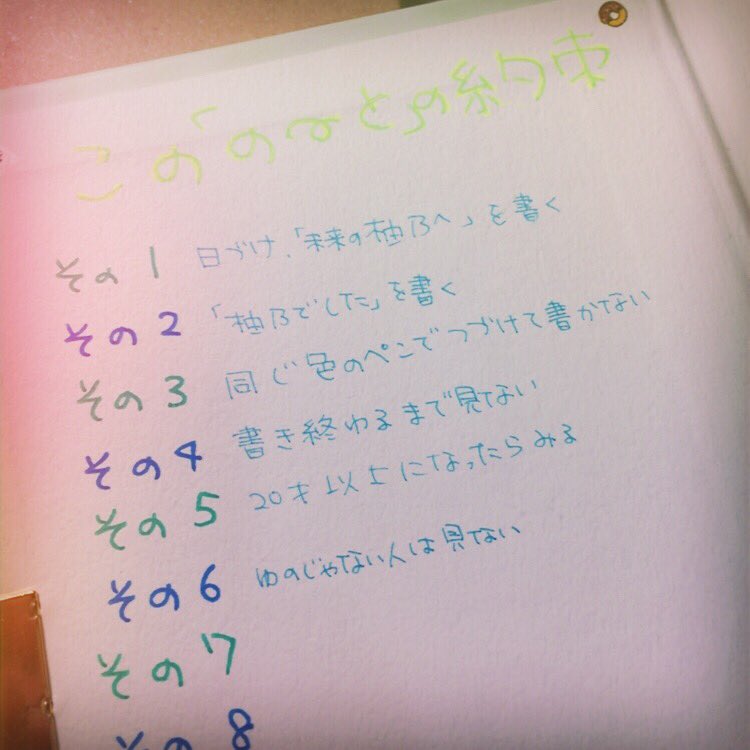 この「のーと」の約束
その1 日づけ、「未来の柚乃へ」を書く
その2 「柚乃でした」を書く
その3 同じ色のペンでつづけて書かない
その4 書き終わるまで見てない
その5 20才以上になったらみる
その6 ゆのじゃない人は見ない
その7
その8